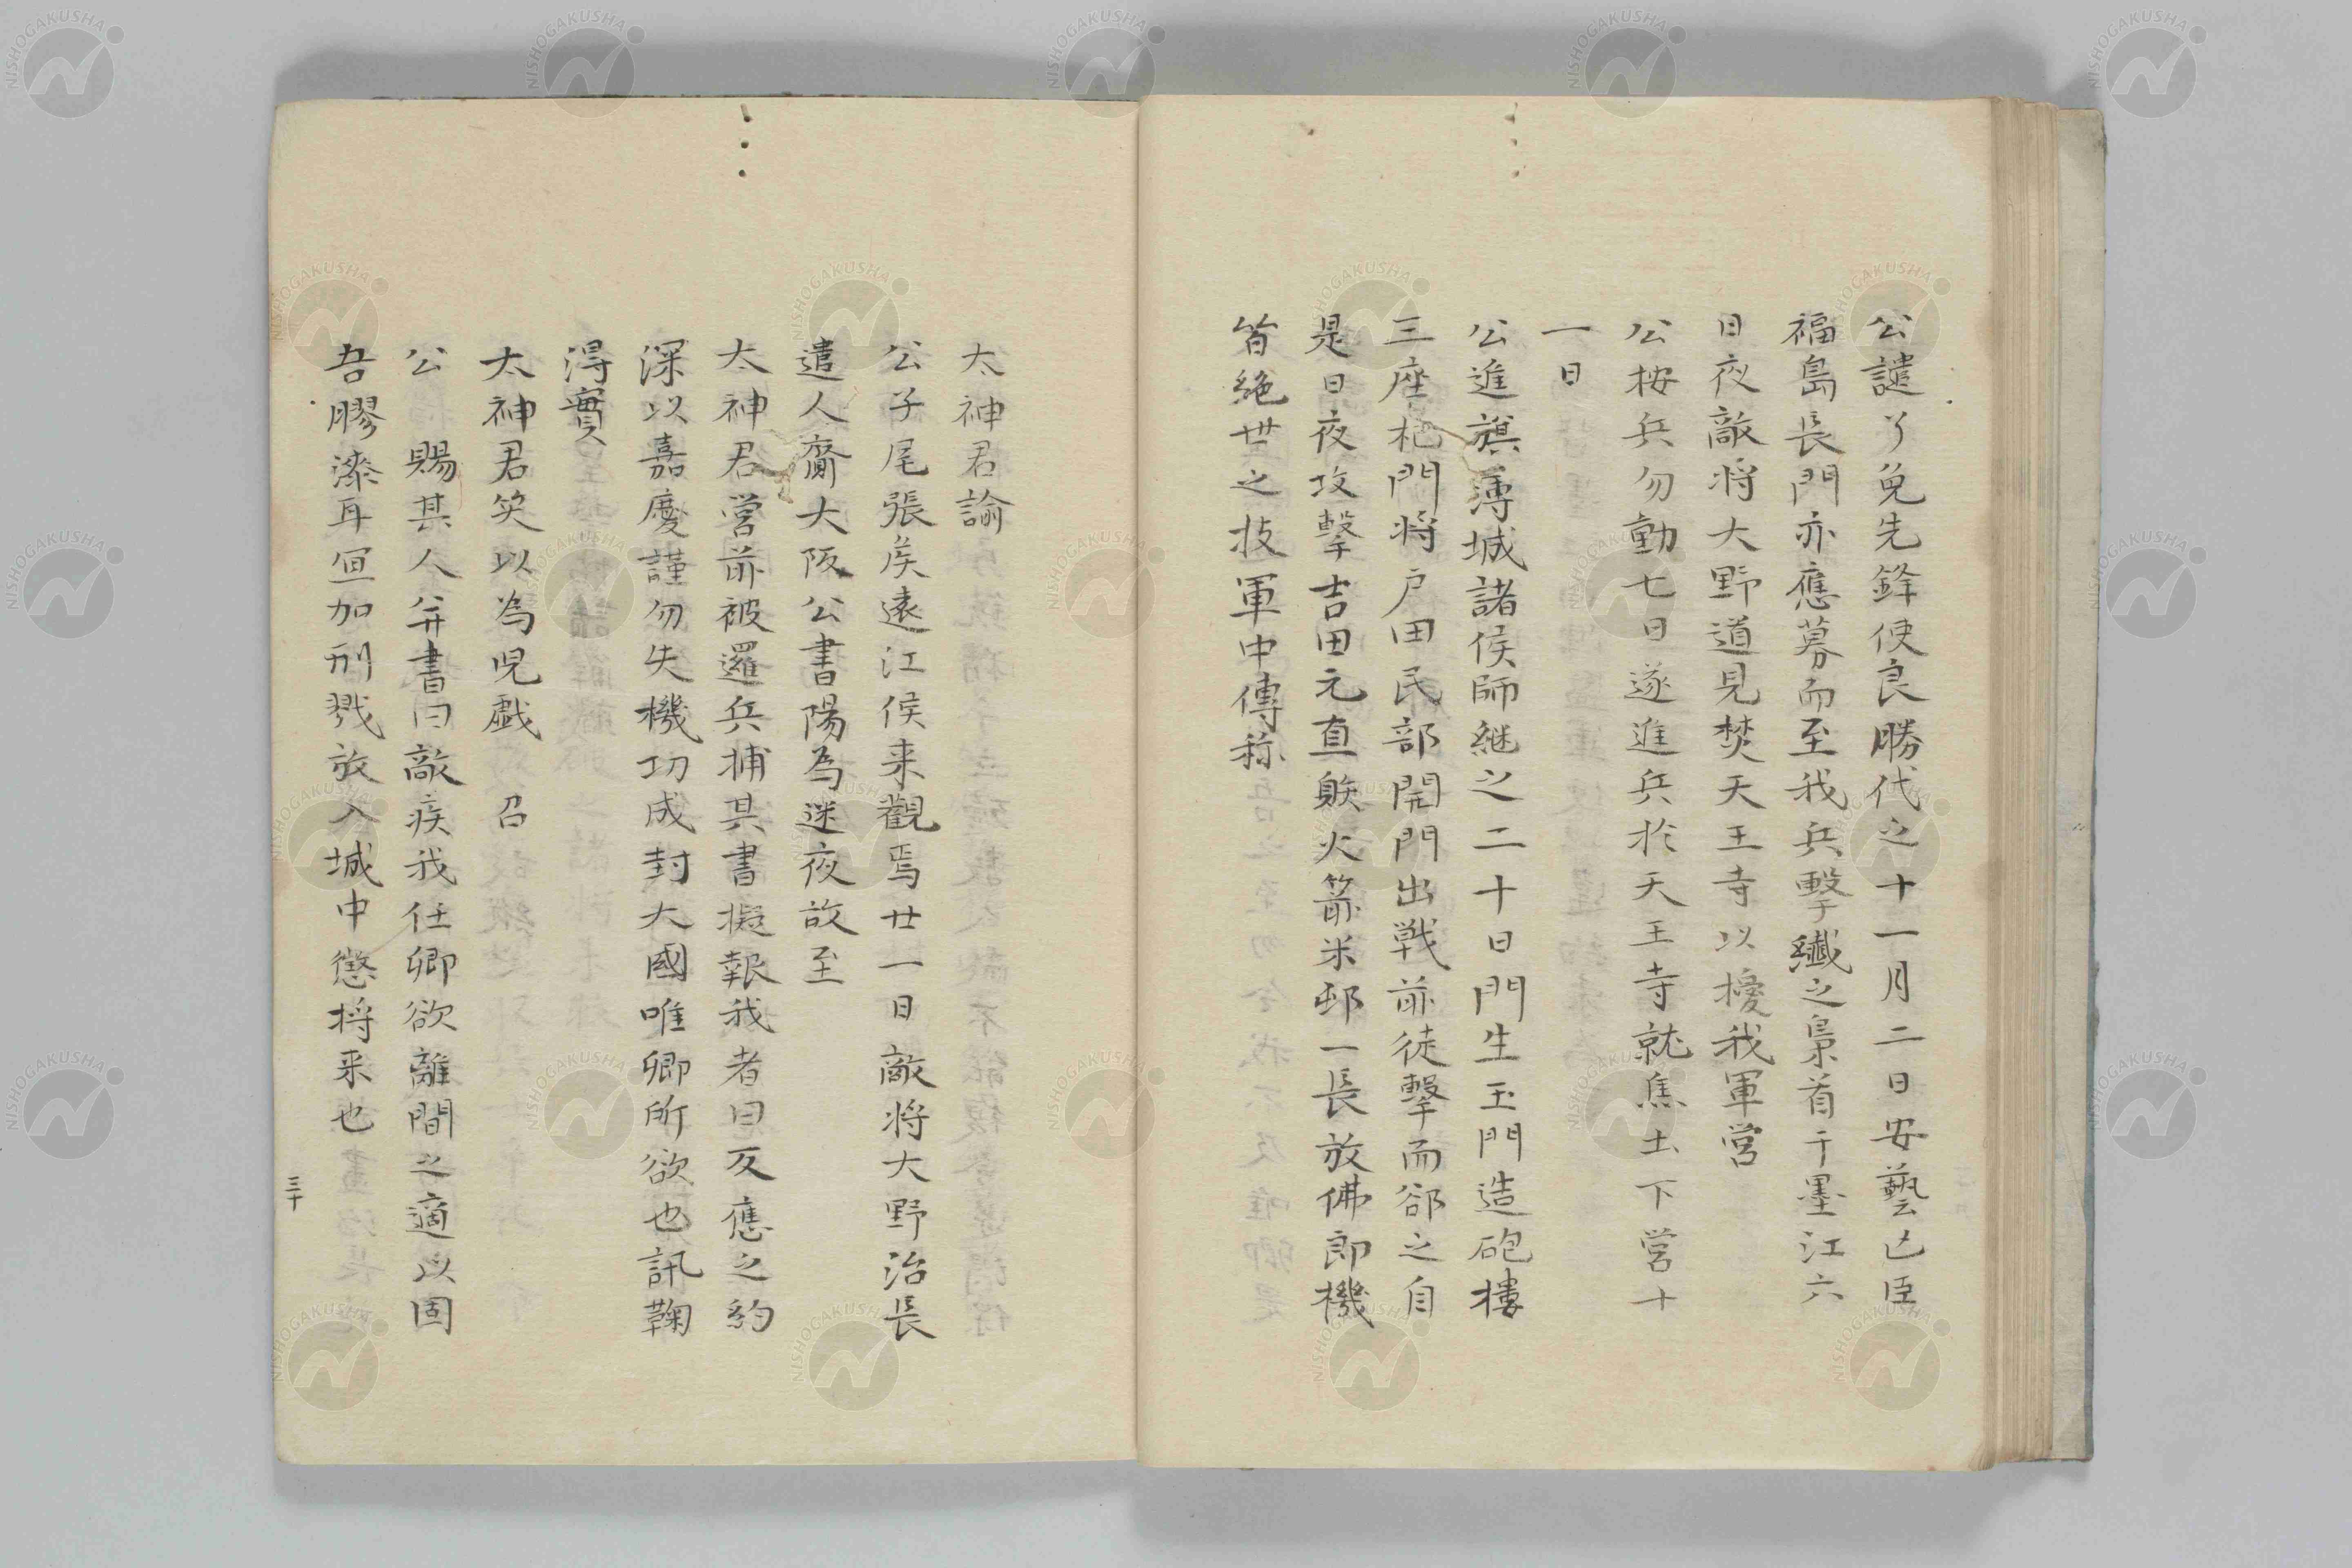 公譴了免先鋒使良勝代之十一月二日安藝已臣
福島長門亦應募而至我兵擊殲之梟首于墨江六
日夜敵将大野道見焚天王寺以擾我軍営
公按兵勿動七日遂進兵於天王寺就焦土下営十
一日
公進旗薄城諸侯師継之二十日門生玉門造砲樓
三座栖門将户田民部開門出戦前徒擊而郤之自
是日夜攻擊吉田元直䠶火箭米邨一長放佛郎機
皆絶世之技軍中傳称
太神君諭
公子尾張矦遠江侯来觀焉廿一日敵将大野治長
遣人齎大阪公書陽為迷夜故至
太神君営前被邏兵捕其書擬報我者曰反應之約
深以嘉慶謹勿失機功成封大國唯卿所欲也訊鞠
淂實
太神君笑以為児戯 召
公 賜其人并書曰敵疾我任卿欲離間之適以固
吾膠漆耳宜加刑戮放入城中懲将来也
三十
NISHOGAKUSHA